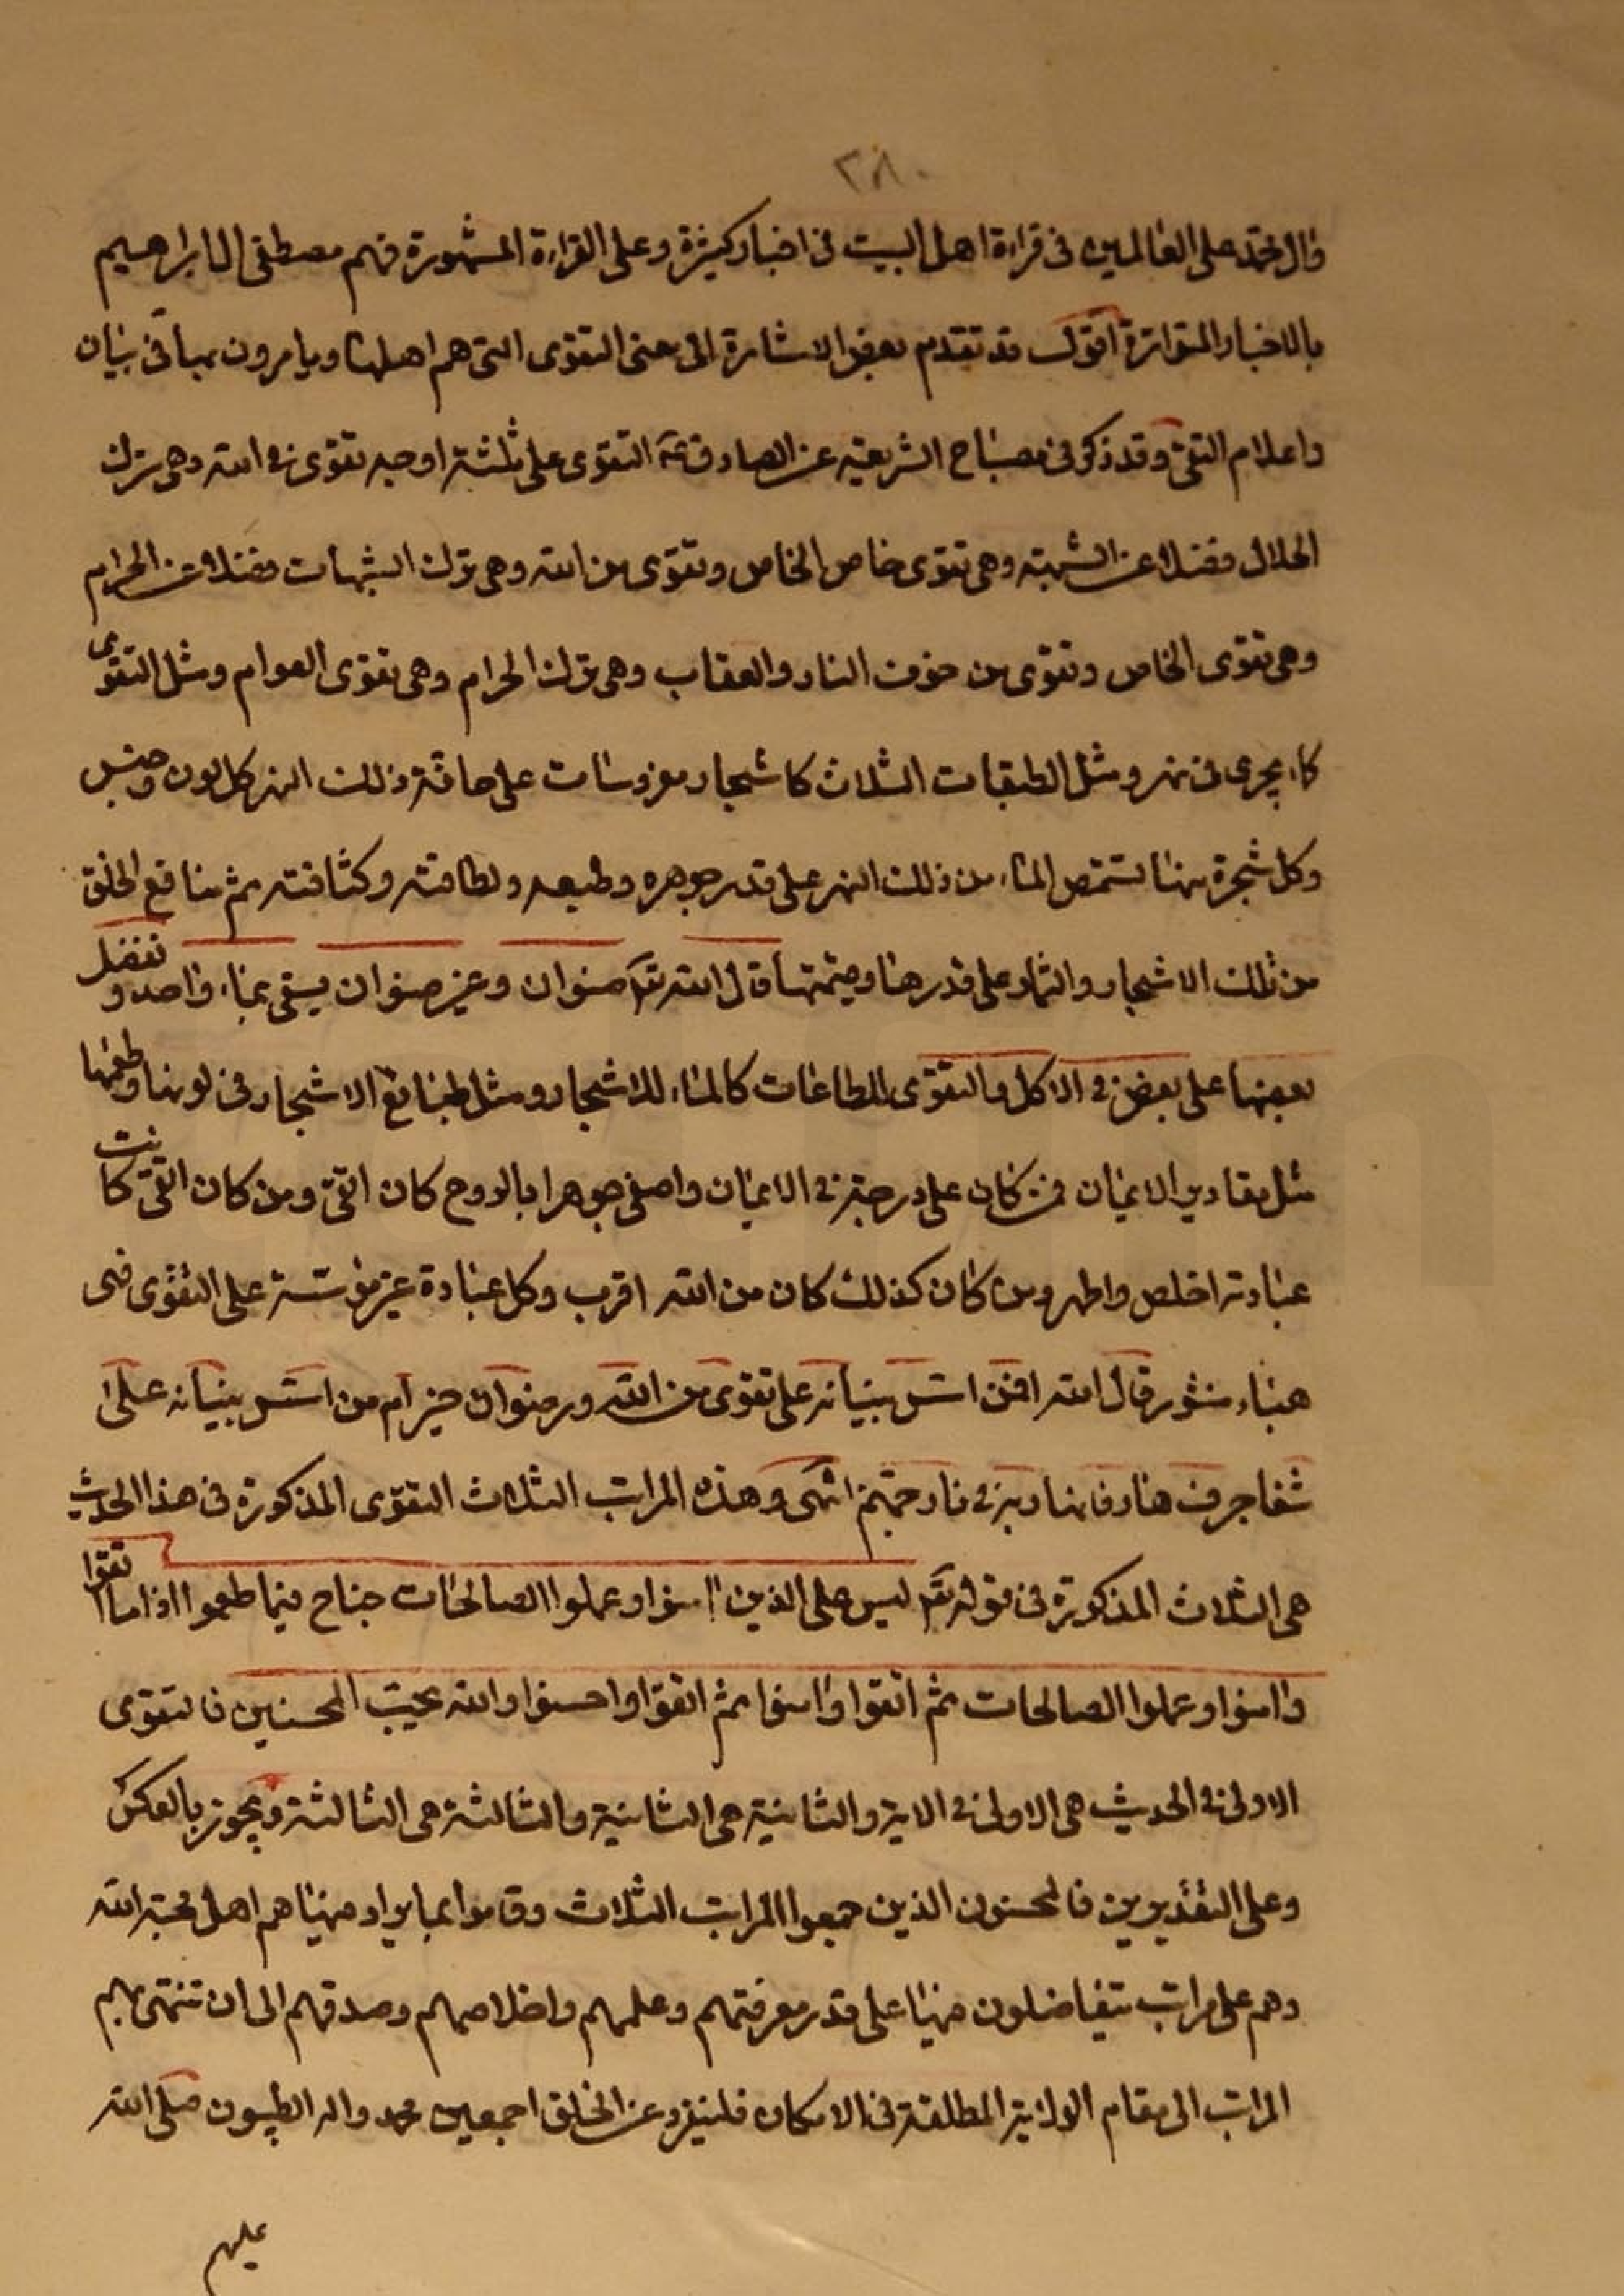 ٢٨٠
وال محمد على العالمين فى قراءة اهل البيت فى اخبار كثيرة وعلى القراءة المشهورة فهم مصطفى ال ابراهيم
بالاخبار المتواترة اقول قد تقدم بعض الاشارة الى معنى التقوى التى هم اهلها ويامرون بها فى بيان
واعلام التقى وقد ذكر فى مصباح الشريعة عن الصادق عم التقوى على ثلثة اوجه تقوى فى الله وهى ترك
الحلال فضلا عن الشبهة وهى تقوى خاص الخاص وتقوى من الله وهى ترك الشبهات فضلا عن الحرام
وهى تقوى الخاص وتقوى من خوف النار والعقاب وهى ترك الحرام وهى تقوى العوام ومثل التقوى
كماء يجرى فى نهر ومثل الطبقات الثلاث كاشجار مغروسات على حافة ذلك النهر كل لون وجنس
وكل شجرة منها تستمص الماء من ذلك النهر على قدر جوهره وطبعه ولطافته وكثافته ثم منافع الخلق
من تلك الاشجار والثمار على قدرها وقيمتها قال الله تع صنوان وغير صنوان يسقى بماء واحد ونفضل
بعضها على بعض فى الاكل والتقوى للطاعات كالماء للاشجار ومثل طبايع الاشجار فى لونها وطعمها
مثل مقادير الايمان فمن كان على درجة فى الايمان واصفى جوهرا بالروح كان اتقى ومن كان اتقى كانت
عبادته اخلص واطهر ومن كان كذلك كان من الله اقرب وكل عبادة غير مؤسسة على التقوى فهى
هباء منثور قال الله افمن اسس بنيانه على تقوى من الله ورضوان خير ام من اسس بنيانه على
شفا جرف هار فانهار به فى نار جهنم انتهى وهذه المراتب الثلاث التقوى المذكورة فى هذا الحديث
هى الثلاث المذكورة فى قوله تع ليس على الذين امنوا وعملوا الصالحات جناح فيما طعموا اذا ما اتقوا
وامنوا وعملوا الصالحات ثم اتقوا وامنوا ثم اتقوا واحسنوا والله يحب المحسنين فالتقوى
الاولى فى الحديث هى الاولى فى الاية والثانية هى الثانية والثالثة هى الثالثة ويجوز بالعكس
وعلى التقديرين فالمحسنون الذين جمعوا المراتب الثلاث وقاموا بما يراد منها هم اهل محبة الله
وهم على مراتب يتفاضلون فيها على قدر معرفتهم وعلمهم واخلاصهم وصدقهم الى ان تنتهى بهم
المراتب الى مقام الولاية المطلقة فى الامكان فلينفرد عن الخلق اجمعين محمد واله الطيبون صلى الله
عليهم